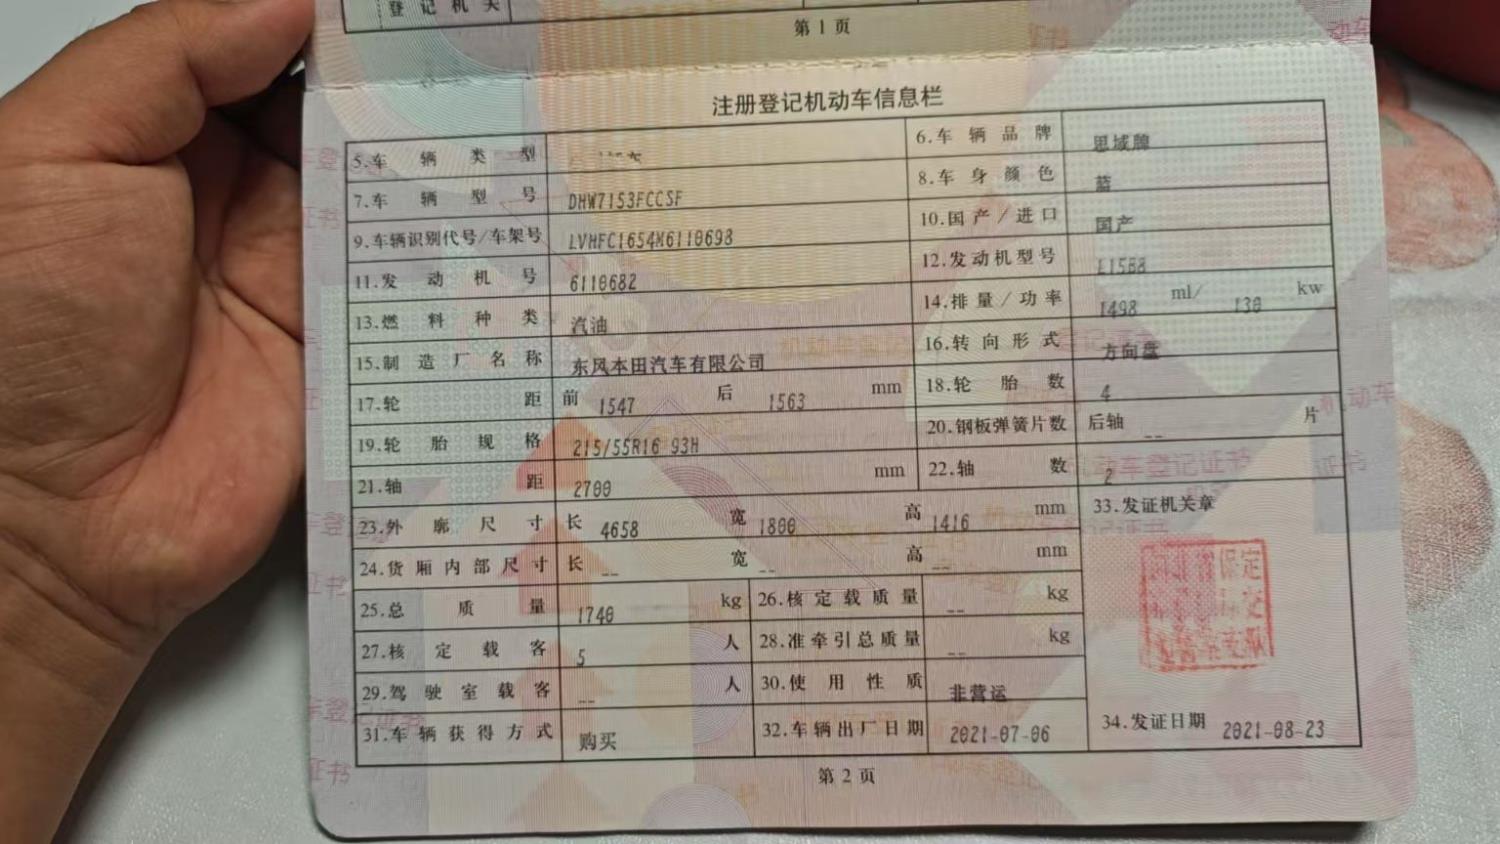 登记机关
第1页
注册登记机动车信息栏
5.车辆类型
6.车辆品牌 思域牌
7.车辆型号 DHW7153FCCSF
8.车身颜色 蓝
9.车辆识别代号/车架号 LVHFC1654M6110698
10.国产/进口 国产
11.发动机号 6110682
12.发动机型号 L15B8
13.燃料种类 汽油
14.排量/功率 1498 ml/ 130 kw
15.制造厂名称 东风本田汽车有限公司
16.转向形式 方向盘
17.轮距 前 1547 后 1563 mm
18.轮胎数 4
19.轮胎规格 215/55R16 93H
20.钢板弹簧片数 后轴 -- 片
21.轴距 2700 mm
22.轴数 2
23.外廓尺寸 长 4658 宽 1800 高 1416 mm
33.发证机关章
24.货厢内部尺寸 长 -- 宽 -- 高 -- mm
25.总质量 1740 kg
26.核定载质量 -- kg
27.核定载客 5 人
28.准牵引总质量 -- kg
29.驾驶室载客 -- 人
30.使用性质 非营运
31.车辆获得方式 购买
32.车辆出厂日期 2021-07-06
34.发证日期 2021-08-23
第2页